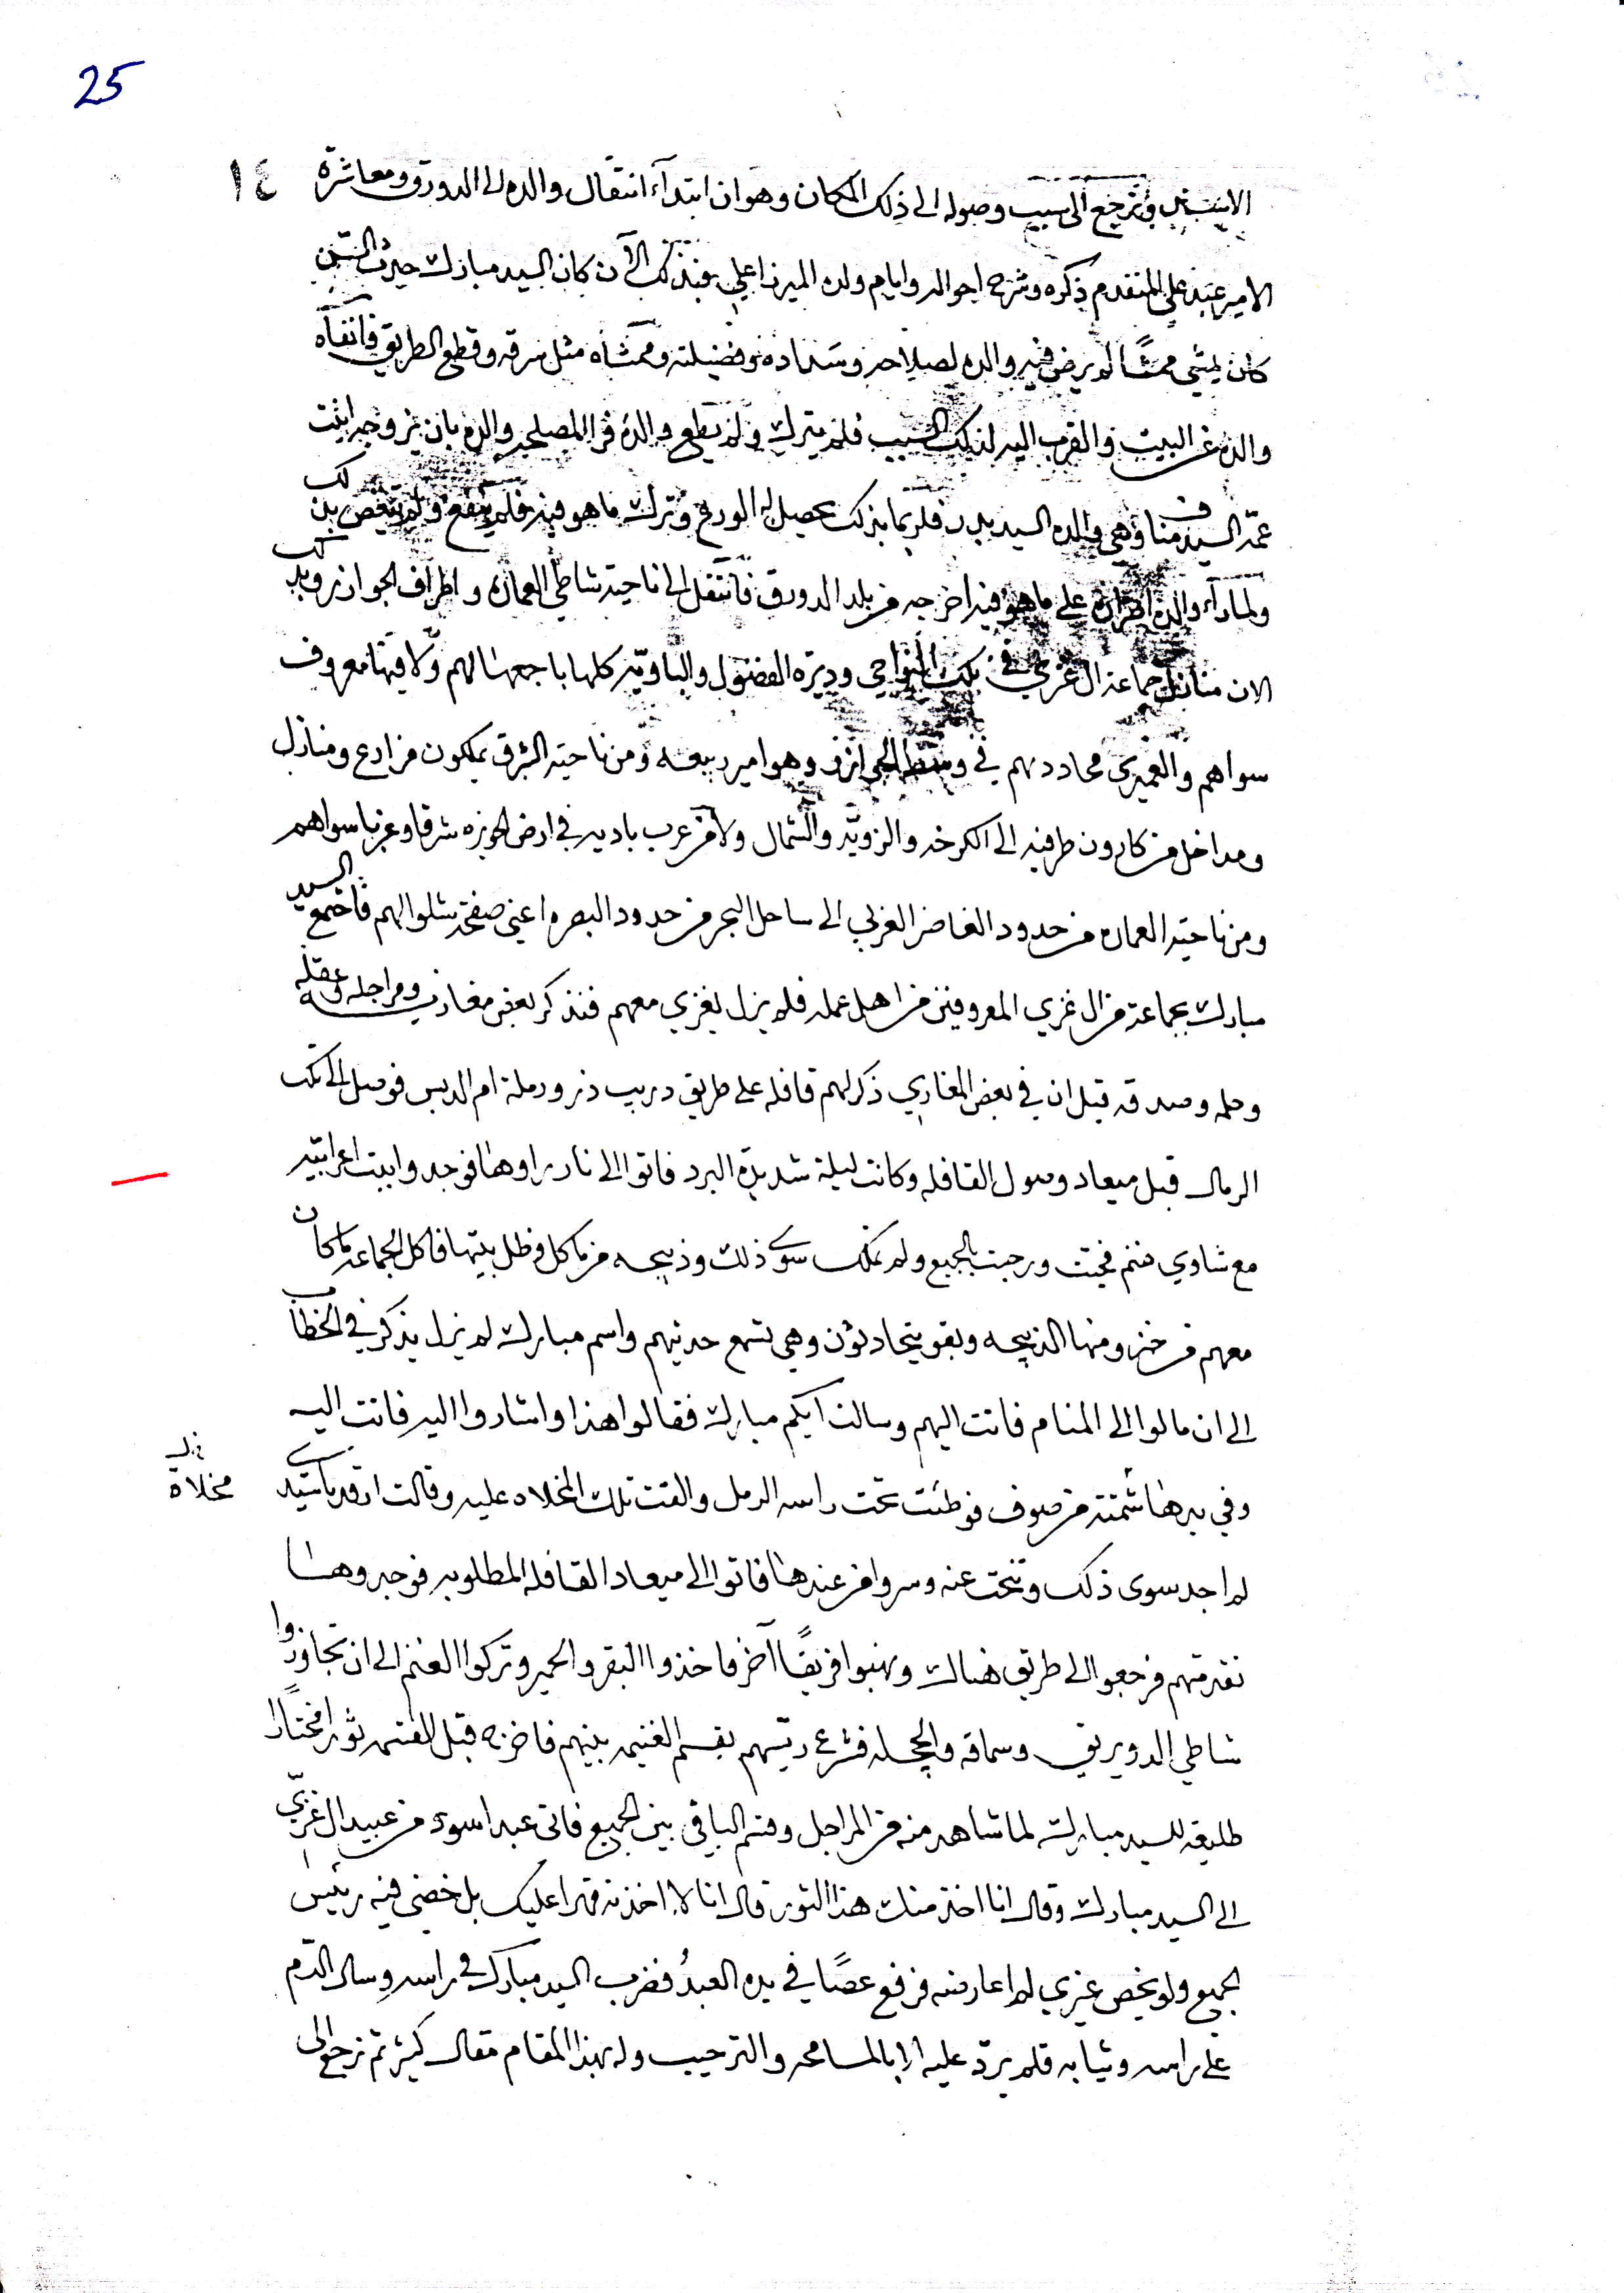 25
١٤
ونرجع الى سبب وصوله الى ذلك المكان وهو ان ابتدآء انتقال والده الى الدورق ومعاشرة
الامير عبد علي المتقدم ذكره وشرح احواله وايام ولده الميرزا علي فبذلك الآن كان السيد مبارك
كان يمشي ممشًا لم يرض فيه والده لصلاحه وسداده وفضيلته وممشاه مثل سرقه وقطع الطريق فانفاه
والده عن البيت والقرب اليه لذلك السبب فلم يترك ولم يطع والده فرا المصلحه والده بان يزوجه ابنت
عمه السيد مناف وهي والده السيد بدر فلربما بذلك يحصل له الورع وترك ما هو فيه فلم ينفع ولم بذلك
ولما رآء والده على ما هو فيه اخرجه من بلد الدورق فانتقل الى ناحية شاطي العماره واطراف الجوازر
الان منازل جماعة ال غزي في تلك النواحي وديرة الفضول والباويه كلها باجمعها لهم ولا فيها معروف
سواهم والعميري محاددهم في وسط الجوازر وهو امير ربيعه ومن ناحية الشرق يملكون مزارع ومنازل
ومداخل من كارون طرفيه الى الكرخه والزويه والشمال ولا من عرب باديه في ارض الحويزه شرقا وغربا سواهم
ومن ناحية العماره من حدود الغاضر الغربي الى ساحل البحر من حدود البصره اعني صفحة شلوا لهم فاجتمع السيد
مبارك بجماعة من ال غزي المعروفين من اهل عمله فلم يزل يغزي معهم فنذكر بعض مغازيه ومراجله وعقله
وحلمه وصدقه قيل ان في بعض المغازي ذكر لهم قافله على طريق دريب ذر ورملة ام الدبس فوصل الى تلك
الرمال قبل ميعاد وصول القافله وكانت ليلة شديدة البرد فاتوا الى نار راوها فوجدوا بيت اعرابيه
مع شاوي غنم فجئت ورحبت بالجميع ولم تملك سوى ذلك وذبيحه من ماكل وظل بيتها فاكل الجماعه ما كان
معهم من خبز ومنها الذبيحه وبقو يتحادثون وهي تسمع حديثهم واسم مبارك لم يزل يذكر في الخطاب
الى ان مالوا الى المنام فاتت اليهم وسالت ايكم مبارك فقالوا هذا واشاروا اليه فاتت اليه
وفي يدها من صوف فوطئت تحت راسه الرمل والقت تلك المخلاه عليه وقالت ارقد يا سيدي
مخلاة
لم اجد سوى ذلك وتنحت عنه وسروا من عندها فاتوا الى ميعاد القافله المطلوبه فوجدوها
تقدمتهم فرجعوا الى طريق هناك ونهبوا فريقًا آخر فاخذوا البقر والحمير وتركوا الغنم الى ان تجاوزوا
شاطي الدويريق وسماقه والجحله فشرع ريسهم بقسم الغنيمه بينهم فاخرج قبل القسمه ثورا مختارًا
طليقه للسيد مبارك لما شاهد منه من المراجل وقسم الباقي بين الجميع فاتى عبد اسود من عبيد ال غزي
الى السيد مبارك وقال انا اخذ منك هذا الثور قال انا لا اخذته قهرا عليك بل خصني فيه رئيس
الجميع ولو يخص غيري لم اعارضه فرفع عصًا في يده العبدُ فضرب السيد مبارك في راسه وسال الدم
على راسه وثيابه فلم يردّ عليه الا بالمسامحه والترحيب وله بهذا المقام مقال كثير ثم نرجع الى